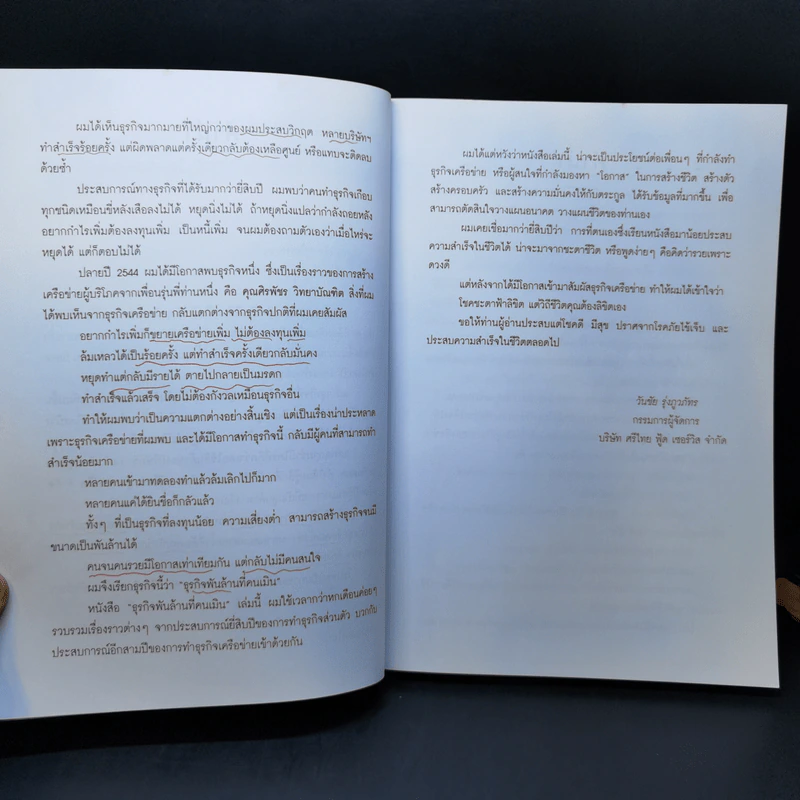 ผมได้เห็นธุรกิจมากมายที่ใหญ่กว่าของผมประสบวิกฤต หลายบริษัทฯ
ทำสำเร็จร้อยครั้ง แต่ผิดพลาดแต่ครั้งเดียวกลับต้องเหลือศูนย์ หรือแทบจะติดลบ
ด้วยซ้ำ
ประสบการณ์ทางธุรกิจที่ได้รับมากว่ายี่สิบปี ผมพบว่าคนทำธุรกิจเกือบ
ทุกชนิดเหมือนขี่หลังเสือลงไม่ได้ หยุดนิ่งไม่ได้ ถ้าหยุดนิ่งแปลว่ากำลังถอยหลัง
อยากกำไรเพิ่มต้องลงทุนเพิ่ม เป็นหนี้เพิ่ม จนผมต้องถามตัวเองว่าเมื่อไหร่จะ
หยุดได้ แต่ก็ตอบไม่ได้
ปลายปี 2544 ผมได้มีโอกาสพบธุรกิจหนึ่ง ซึ่งเป็นเรื่องราวของการสร้าง
เครือข่ายผู้บริโภคจากเพื่อนรุ่นพี่ท่านหนึ่ง คือ คุณศิรพัชร วิทยาบัณฑิต สิ่งที่ผม
ได้พบเห็นจากธุรกิจเครือข่าย กลับแตกต่างจากธุรกิจปกติที่ผมเคยสัมผัส
อยากกำไรเพิ่มก็ขยายเครือข่ายเพิ่ม ไม่ต้องลงทุนเพิ่ม
ล้มเหลวได้เป็นร้อยครั้ง แต่ทำสำเร็จครั้งเดียวกลับมั่นคง
หยุดทำแต่กลับมีรายได้ ตายไปกลายเป็นมรดก
ทำสำเร็จแล้วเสร็จ โดยไม่ต้องกังวลเหมือนธุรกิจอื่น
ทำให้ผมพบว่าเป็นความแตกต่างอย่างสิ้นเชิง แต่เป็นเรื่องน่าประหลาด
เพราะธุรกิจเครือข่ายที่ผมพบ และได้มีโอกาสทำธุรกิจนี้ กลับมีผู้คนที่สามารถทำ
สำเร็จน้อยมาก
หลายคนเข้ามาทดลองทำแล้วล้มเลิกไปก็มาก
หลายคนแค่ได้ยินชื่อก็กลัวแล้ว
ทั้งๆ ที่เป็นธุรกิจที่ลงทุนน้อย ความเสี่ยงต่ำ สามารถสร้างธุรกิจจนมี
ขนาดเป็นพันล้านได้
คนจนคนรวยมีโอกาสเท่าเทียมกัน แต่กลับไม่มีคนสนใจ
ผมจึงเรียกธุรกิจนี้ว่า "ธุรกิจพันล้านที่คนเมิน"
หนังสือ "ธุรกิจพันล้านที่คนเมิน" เล่มนี้ ผมใช้เวลากว่าหกเดือนค่อยๆ
รวบรวมเรื่องราวต่างๆ จากประสบการณ์ยี่สิบปีของการทำธุรกิจส่วนตัว บวกกับ
ประสบการณ์อีกสามปีของการทำธุรกิจเครือข่ายเข้าด้วยกัน
ผมได้แต่หวังว่าหนังสือเล่มนี้ น่าจะเป็นประโยชน์ต่อเพื่อนๆ ที่กำลังทำ
ธุรกิจเครือข่าย หรือผู้สนใจที่กำลังมองหา "โอกาส" ในการสร้างชีวิต สร้างตัว
สร้างครอบครัว และสร้างความมั่นคงให้กับตระกูล ได้รับข้อมูลที่มากขึ้น เพื่อ
สามารถตัดสินใจวางแผนอนาคต วางแผนชีวิตของท่านเอง
ผมเคยเชื่อมากว่ายี่สิบปีว่า การที่ตนเองซึ่งเรียนหนังสือมาน้อยประสบ
ความสำเร็จในชีวิตได้ น่าจะมาจากชะตาชีวิต หรือพูดง่ายๆ คือคิดว่ารวยเพราะ
ดวงดี
แต่หลังจากได้มีโอกาสเข้ามาสัมผัสธุรกิจเครือข่าย ทำให้ผมได้เข้าใจว่า
โชคชะตาฟ้าลิขิต แต่วิถีชีวิตคุณต้องลิขิตเอง
ขอให้ท่านผู้อ่านประสบแต่โชคดี มีสุข ปราศจากโรคภัยไข้เจ็บ และ
ประสบความสำเร็จในชีวิตตลอดไป
วันชัย รุ่งภูวภัทร
กรรมการผู้จัดการ
บริษัท ศรีไทย ฟู้ด เซอร์วิส จำกัด